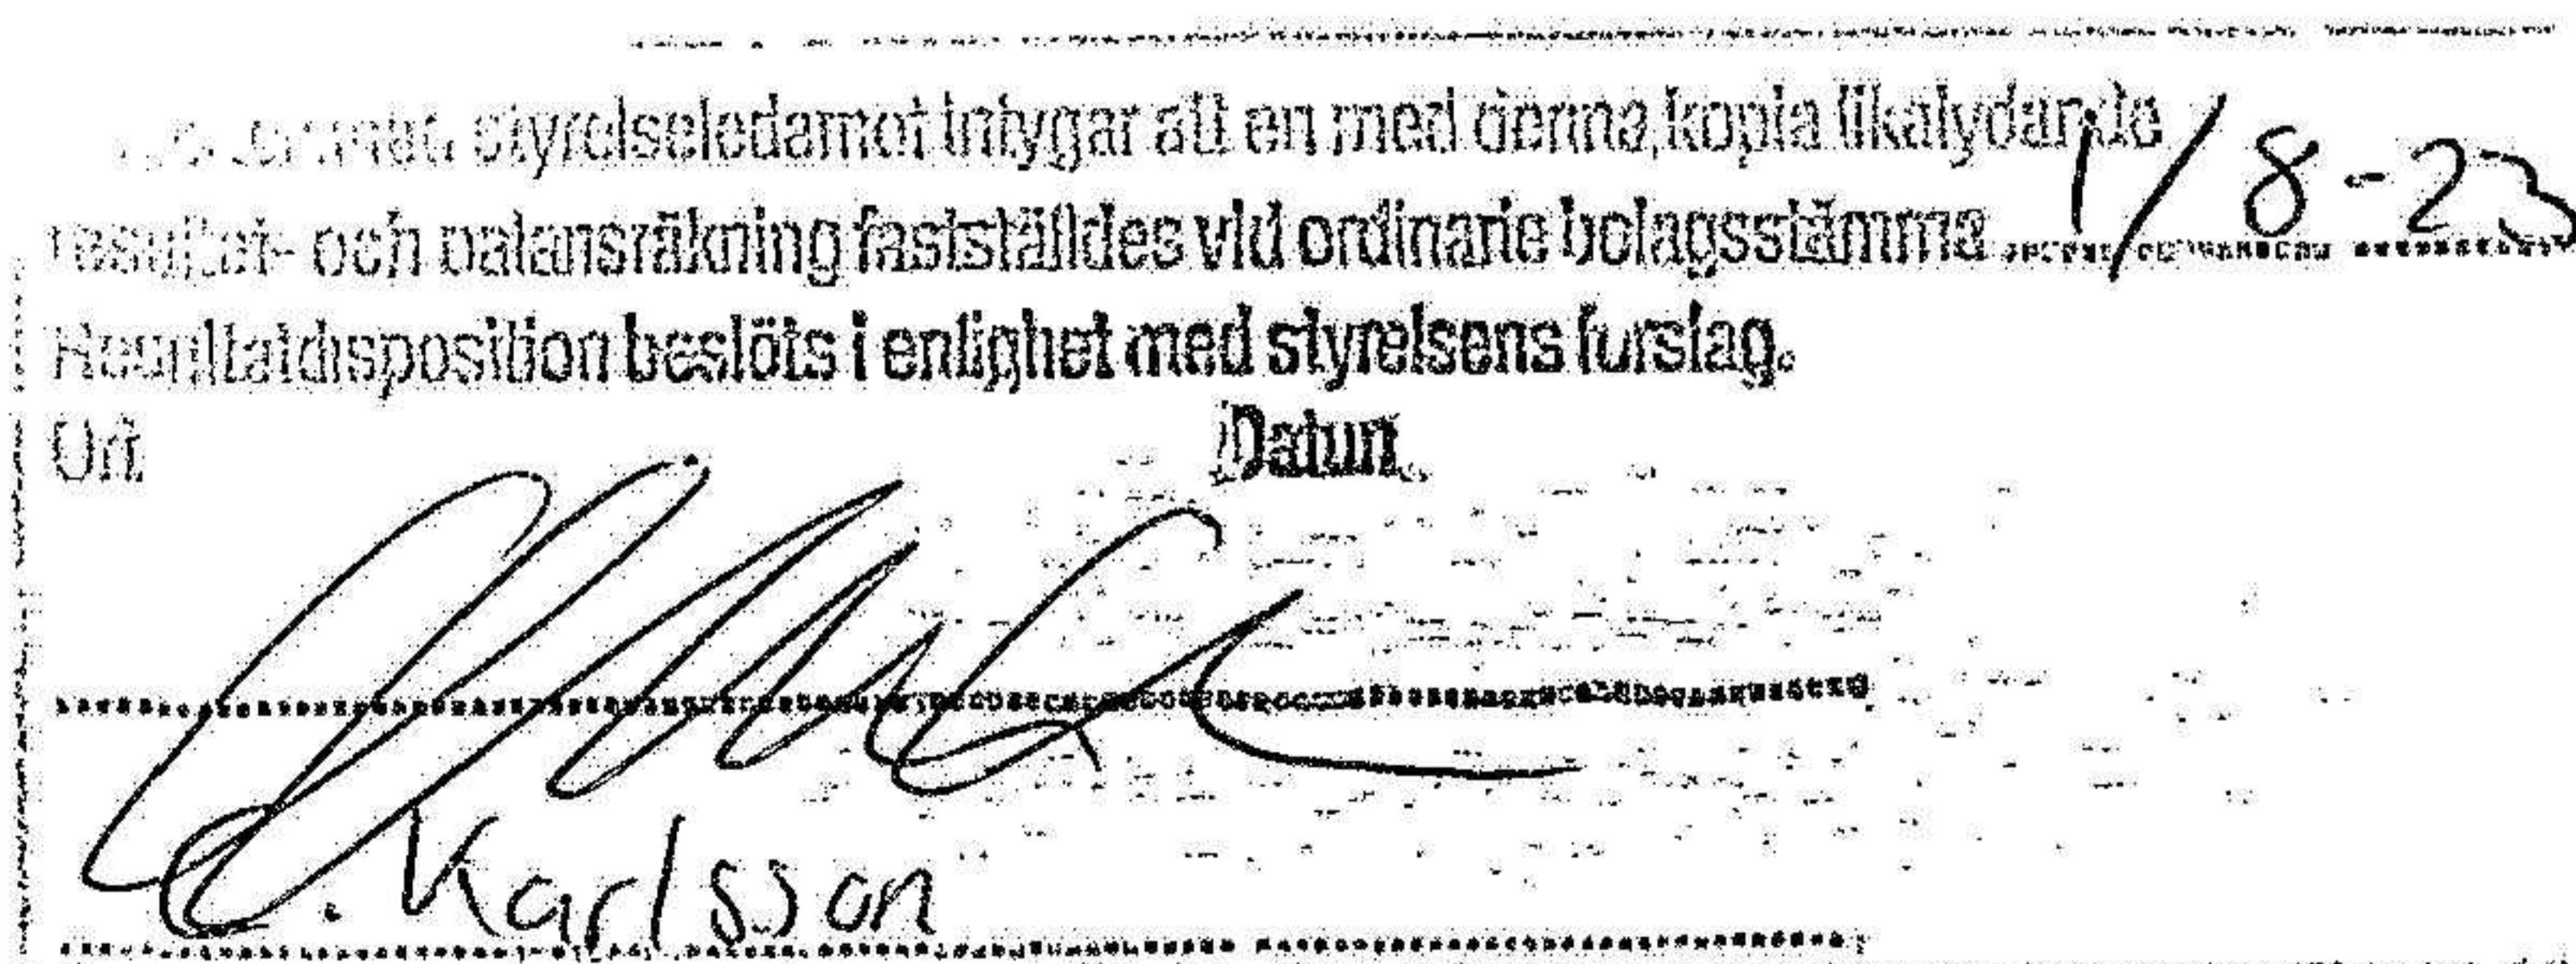 styrelseledamot intygar att en med denna kopia likalydande
resultat- och balansräkning fastställdes vid ordinarie bolagsstämma 1/8-23
Resultatdisposition beslöts i enlighet med styrelsens förslag.
Ort Datum
. Karlsson